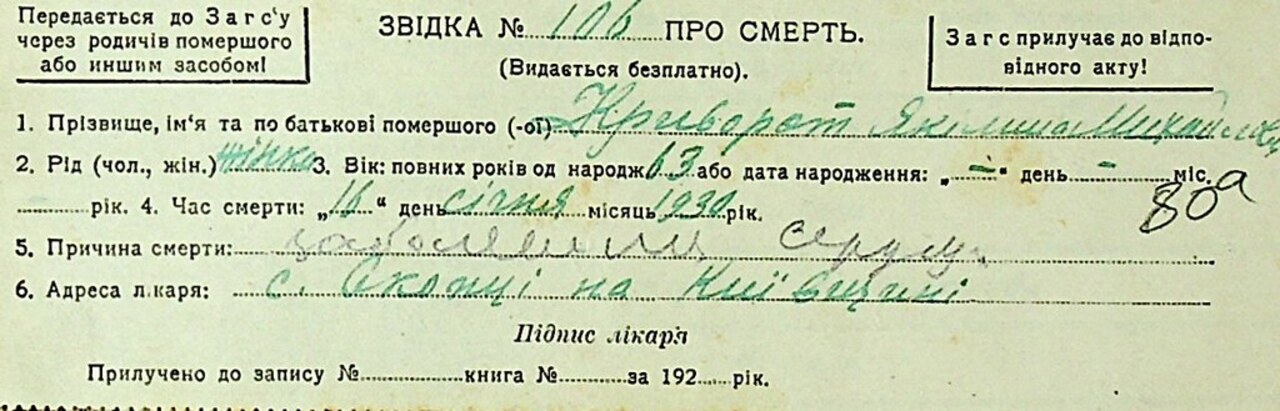 Передається до Загс‘у
через родичів помершого
або иншим засобом!
ЗВІДКА № 106 ПРО СМЕРТЬ.
(Видається безплатно).
Загс прилучає до відпо-
відного акту!
1. Прізвище, ім‘я та по батькові помершого (-ої) Криворот Якилина Михайловна
2. Рід (чол., жін.) жінка 3. Вік: повних років од народж 63 або дата народження: „ - “ день - міс.
- рік. 4. Час смерти: „ 16 “ день січня місяць 1930 рік.
80а
5. Причина смерти: заболевании сердца
6. Адреса лікаря: с. Скопці на Київщині
Підпис лікар‘я
Прилучено до запису № книга № за 192 рік.